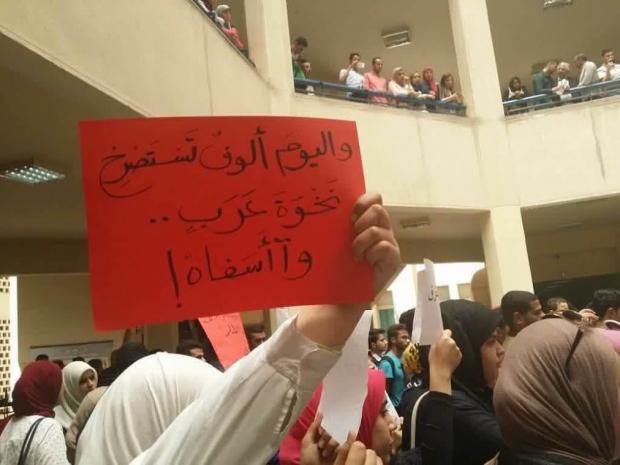 واليَومَ ألوفٌ تَستَصرِخ
نَخْوَةَ عَرَبٍ ..
وآأسَفاهْ !